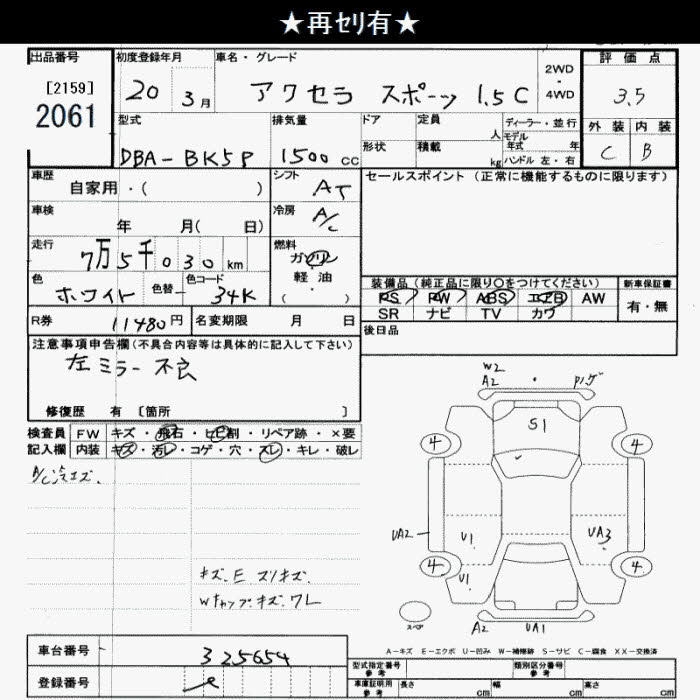 ★再セリ有★
出品番号 初度登録年月 車名・グレード 2WD・4WD 評価点
[2159]
2061
20 3月 アクセラ スポーツ 1.5C 3.5
型式 排気量 ドア 定員 人 ディーラー・並行 外装 内装
モデル年式 年
DBA-BK5P 1500cc 形状 積載 kg ハンドル 左・右 C B
車歴 自家用・( ) シフト AT セールスポイント（正常に機能するものに限ります）
車検 年 月( 日) 冷房 A/C
走行 7万5千030km 燃料 ガソリン・軽油 ( )
色 ホワイト 色替 色コード 34K
装備品（純正品に限り○をつけてください） 新車保証書
PS PW ABS エアB AW 有・無
SR ナビ TV カワ
R券 11480円 名変期限 月 日 後日品
注意事項申告欄(不具合内容等は具体的に記入して下さい)
左ミラー不良
修復歴 有 [箇所 ]
検査員 FW キズ・飛石・ヒビ割・リペア跡・×要
記入欄 内装 キズ・汚レ・コゲ・穴・スレ・キレ・破レ
A/C冷エズ.
キズ.E スリキズ.
Wキャップキズ.ワレ
W2
A2
S1
4 4
UA2 U1 UA3
4 U1 4
スペア A2 UA1
A-キズ E-エクボ U-凹み W-補修跡 S-サビ C-腐食 XX-交換済
車台番号 325654
型式指定番号 参考 類別区分番号 参考
登録番号
車庫証明用 参考 長さ cm 幅 cm 高さ cm